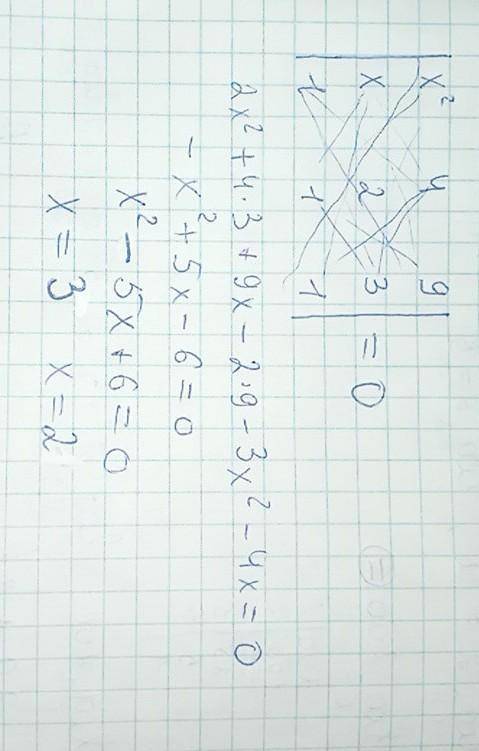 | x² 4 9 |
| x 2 3 | = 0
| 1 1 1 |
2x² + 4·3 + 9x - 2·9 - 3x² - 4x = 0
- x² + 5x - 6 = 0
x² - 5x + 6 = 0
x = 3 x = 2